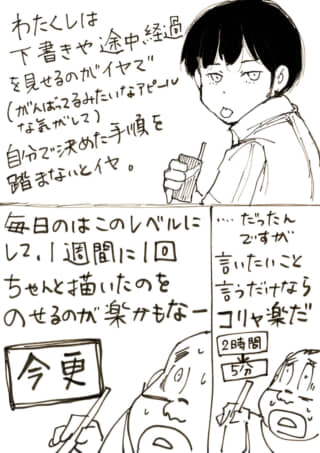 わたくしは
下書きや途中経過
を見せるのがイヤで
(がんばってるみたいなアピール
な気がして)
自分で決めた手順を
踏まないとイヤ。
‥‥だったん
ですが
言いたいこと
言うだけなら
コリャ楽だ
2時間
5分
毎日のはこのレベルに
して、1週間に1回
ちゃんと描いたのを
のせるのが楽かもなー
今更